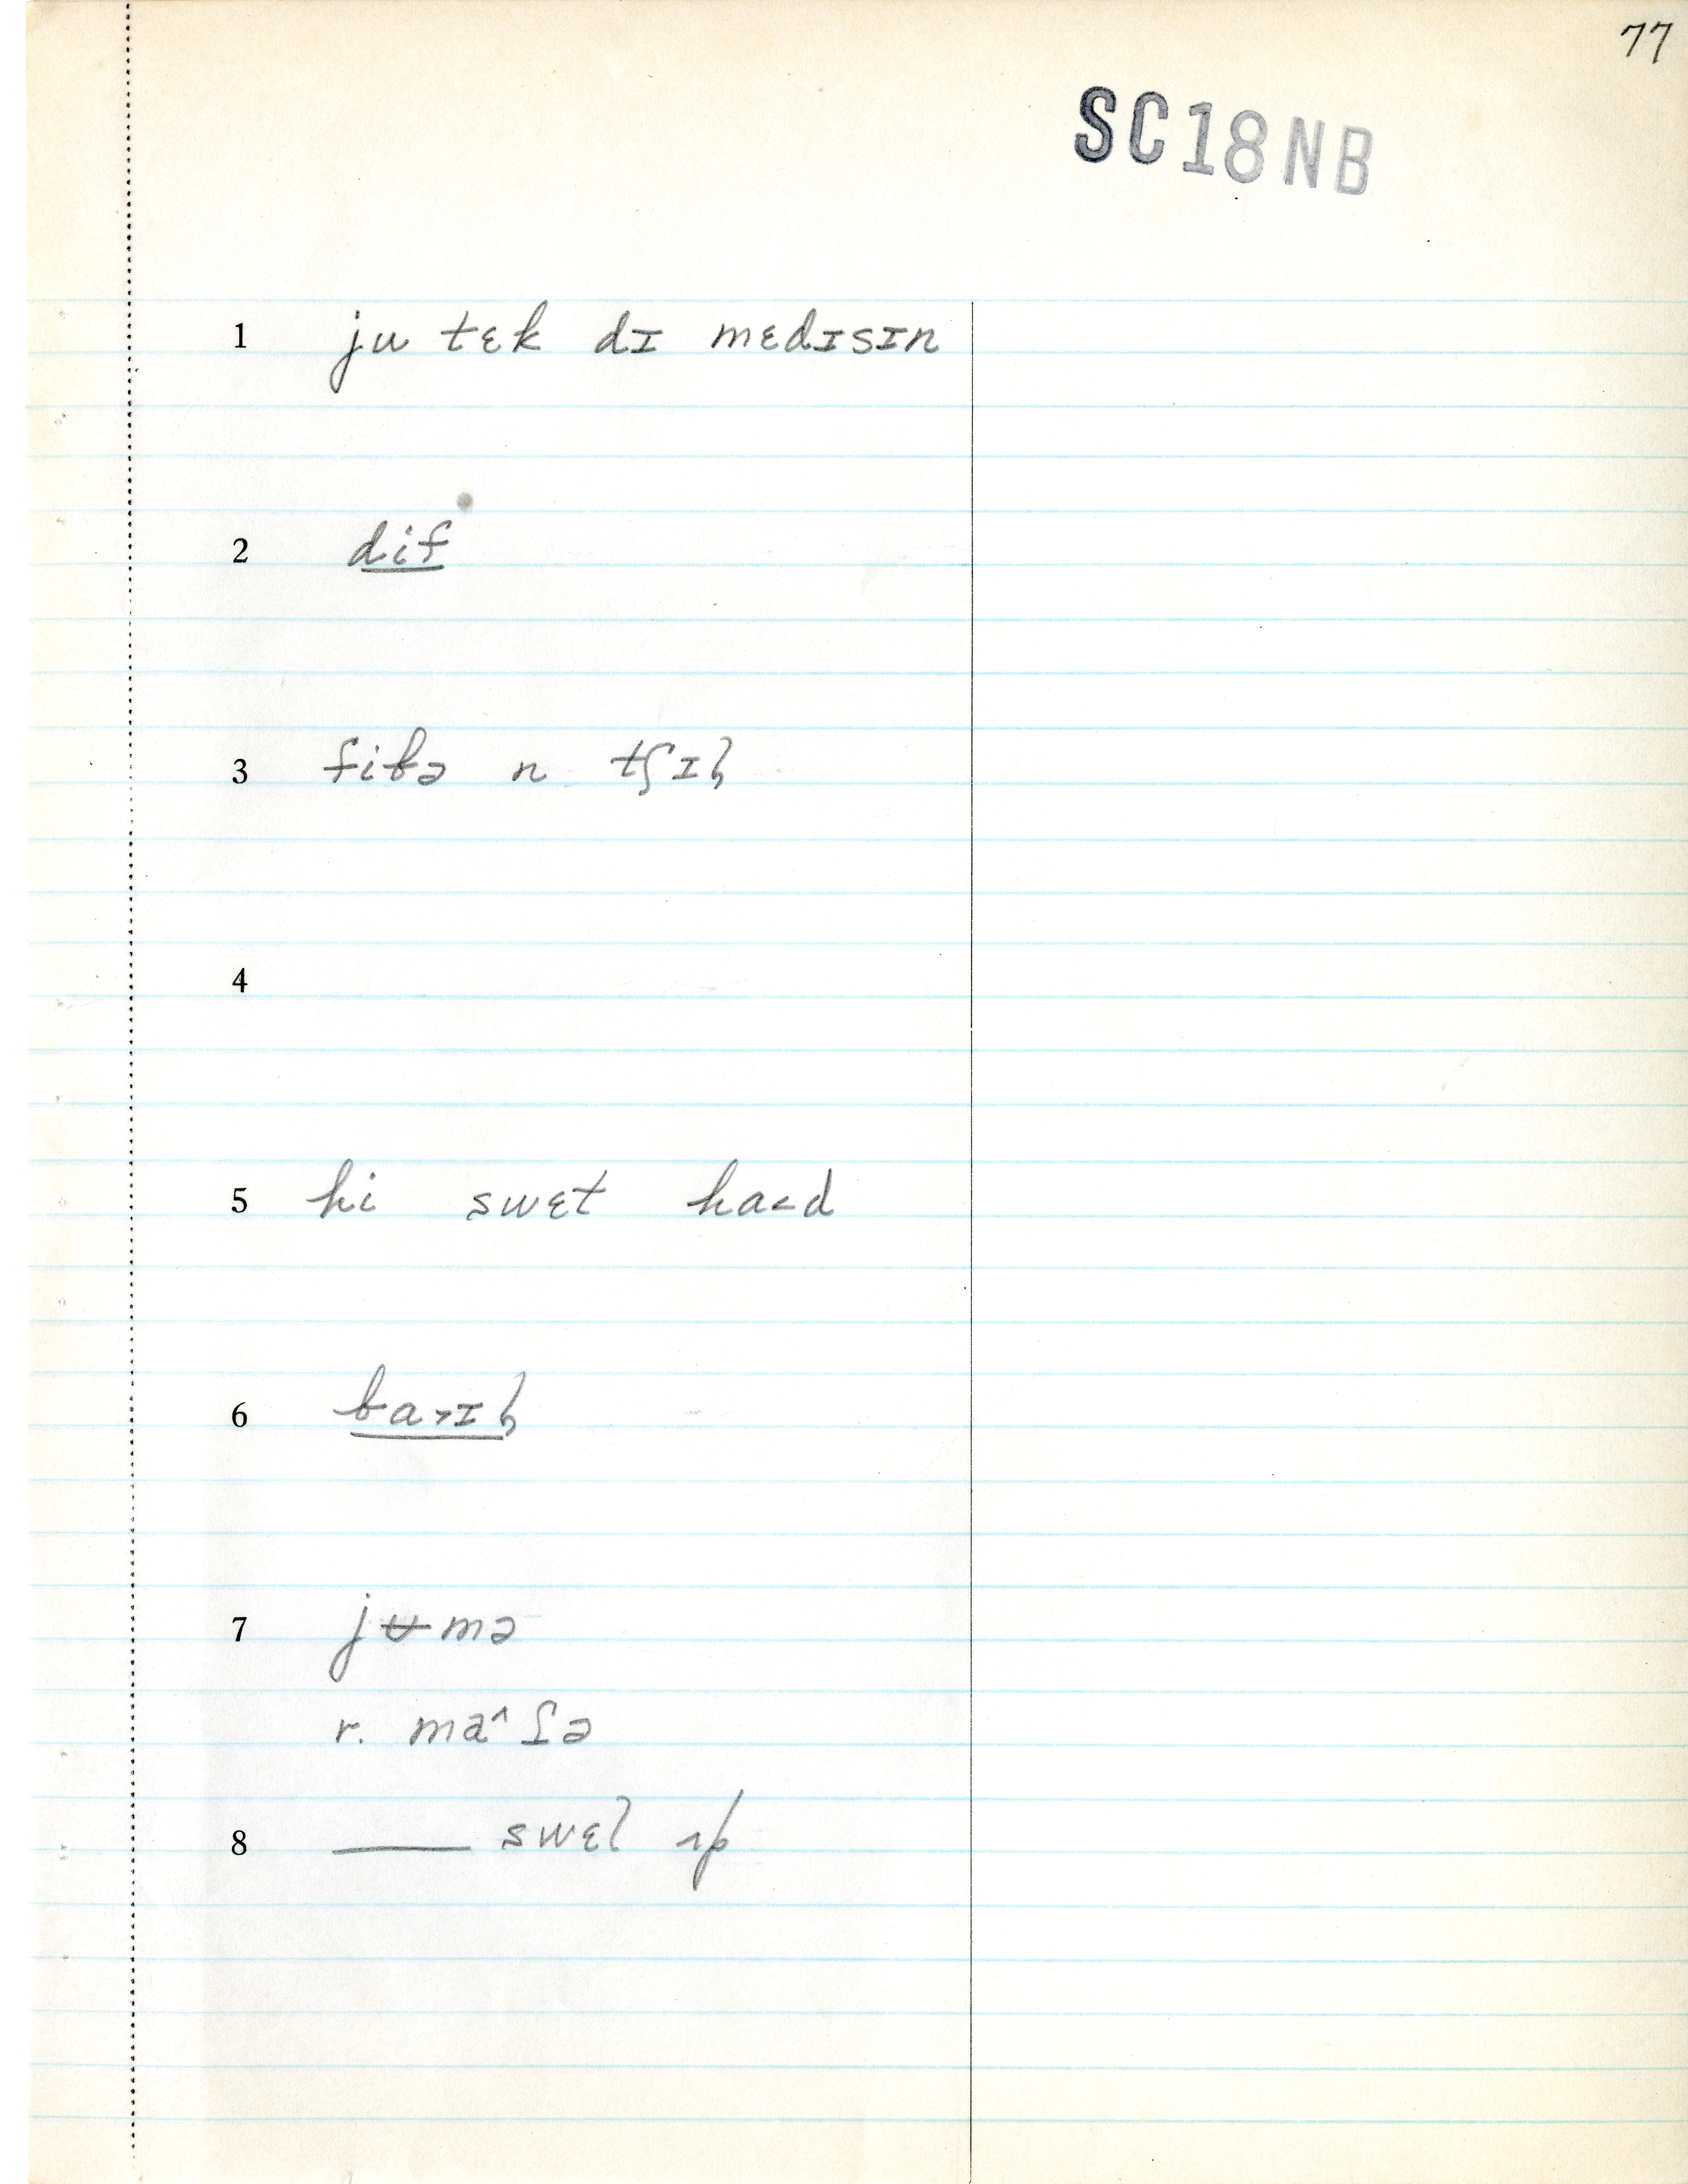 77
SC18NB
1 ju tɛk dɪ mɛdɪsɪn
2 dif
3 fibə n tʃɪl
4
5 hi swɛt ha˂d
6 ba˃ɪl
7 jʉmə
r. ma^ʃə
8 ___ swɛl ʌp